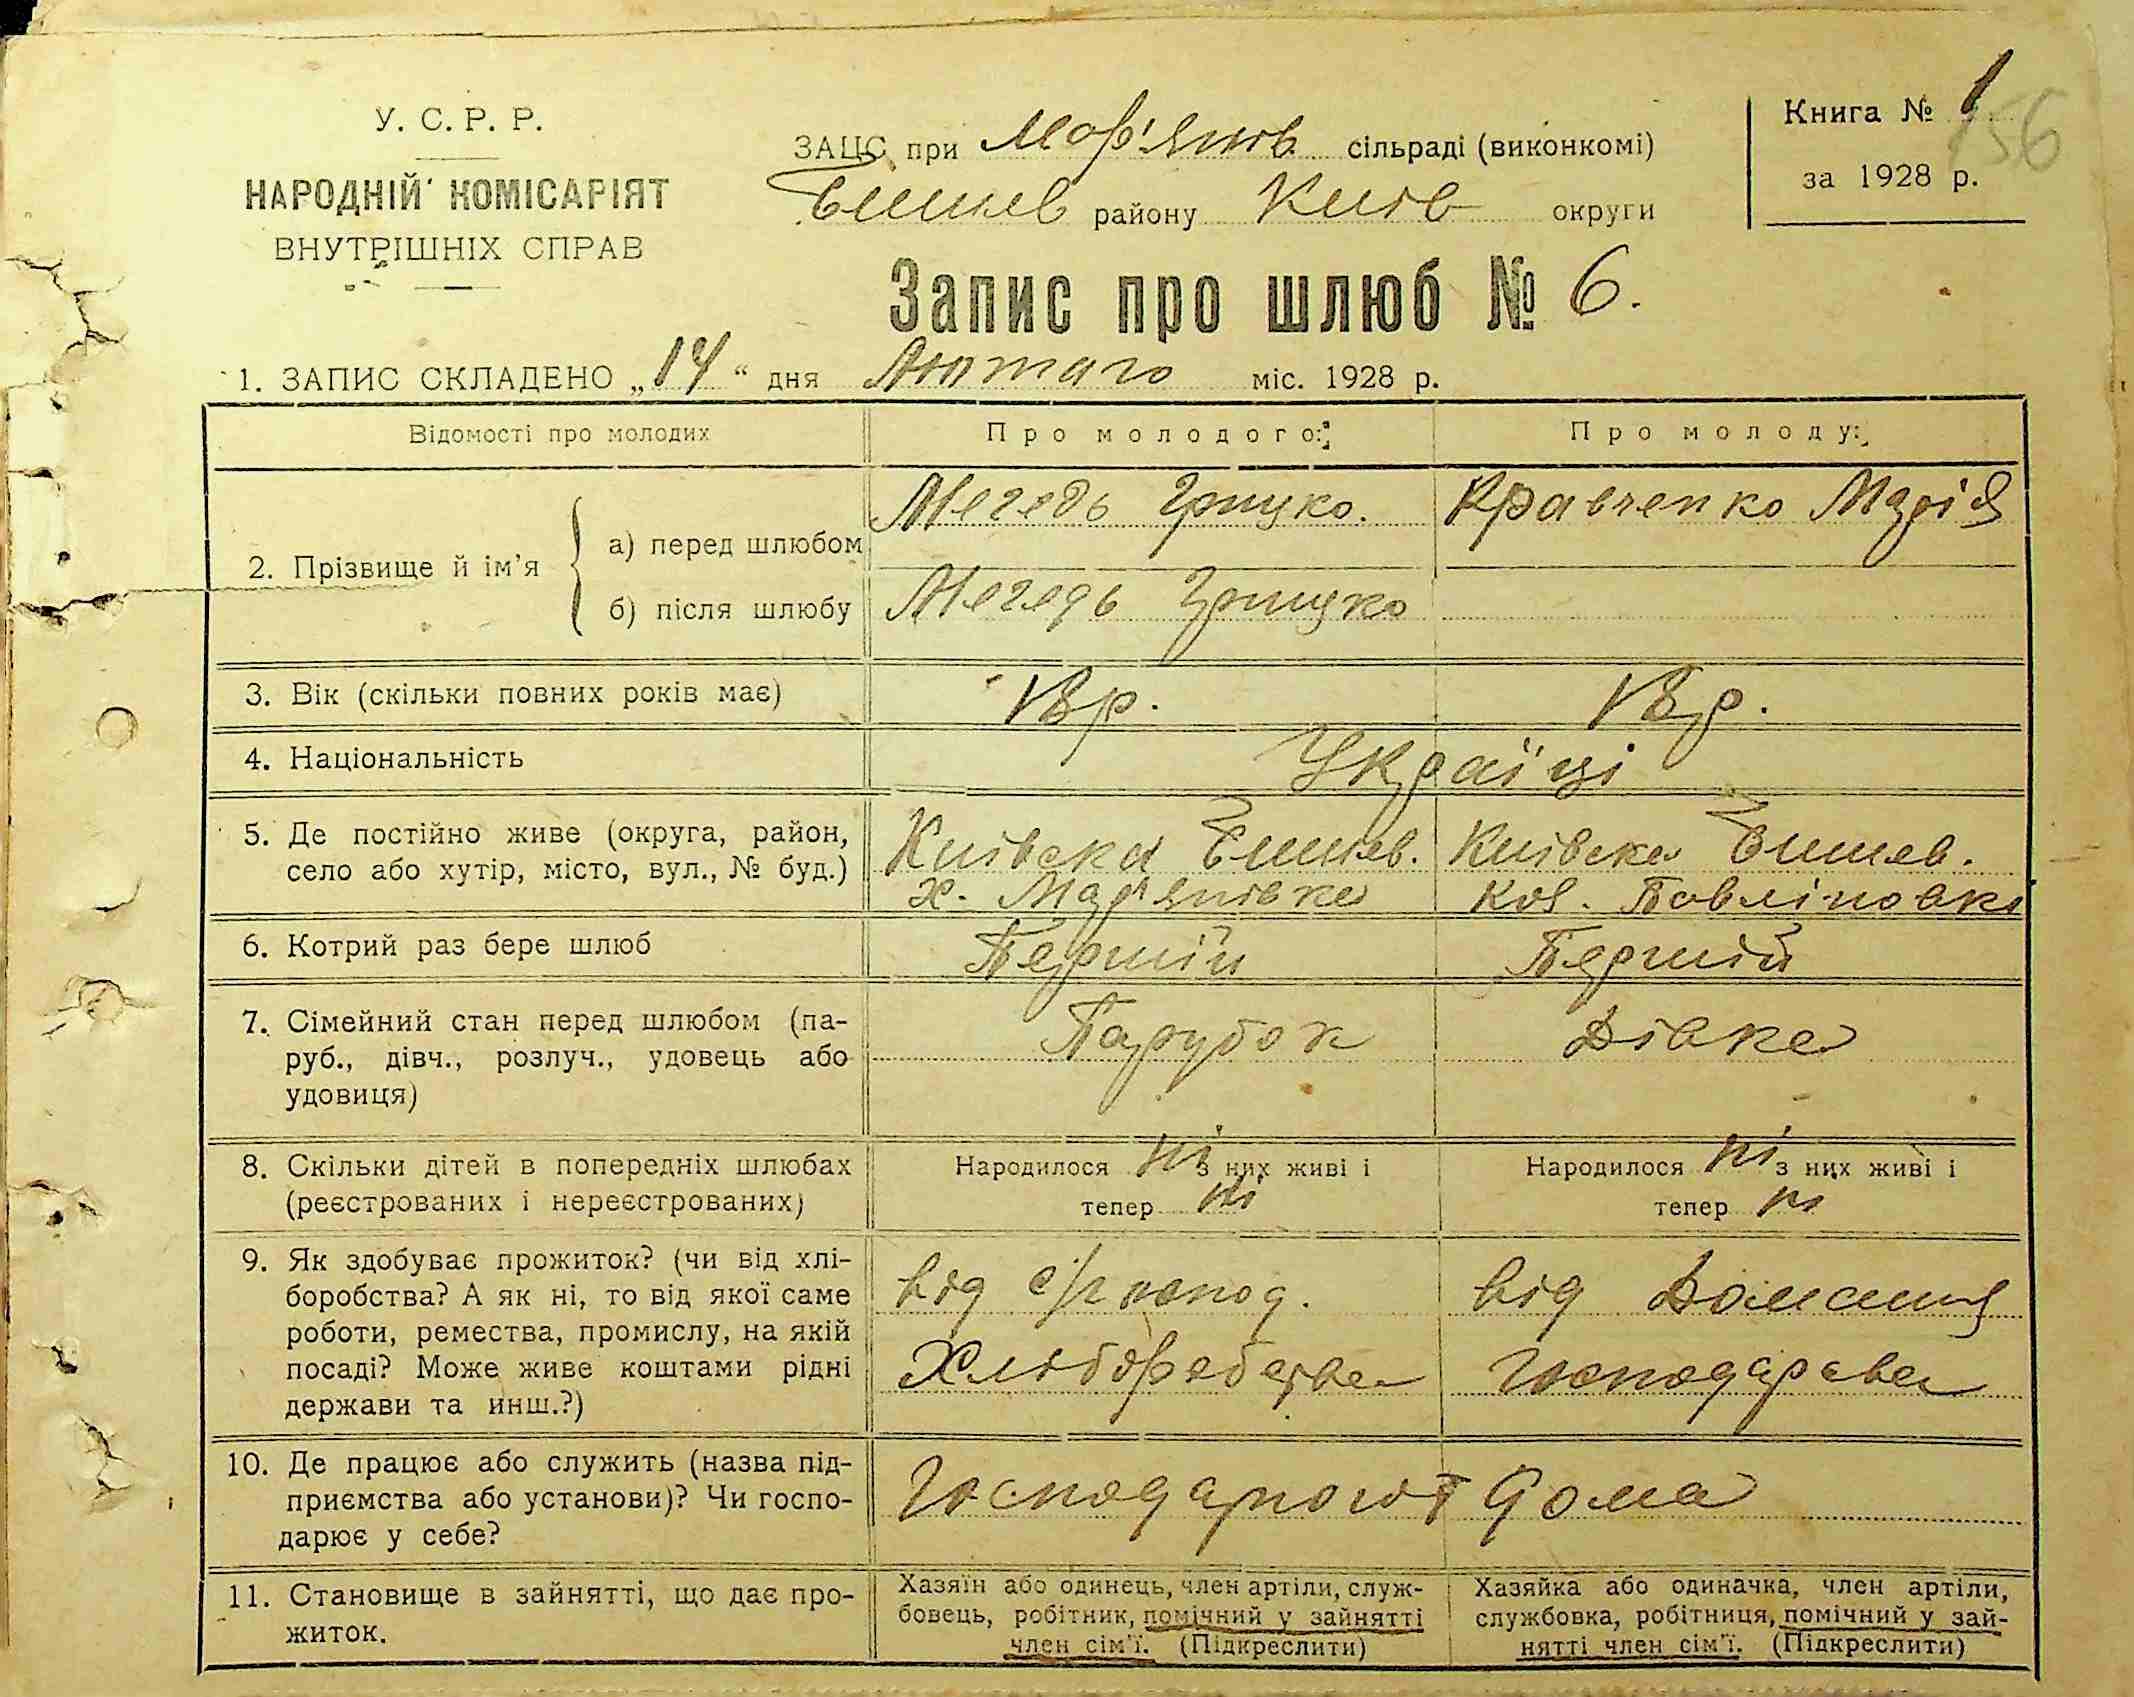 У. С. Р. Р.
НАРОДНІЙ КОМІСАРІЯТ
ВНУТРІШНІХ СПРАВ
ЗАЦС при Мар'янів сільраді (виконкомі)
Бишів району Київ округи
Книга № 1
156
за 1928 р.
Запис про шлюб № 6.
1. ЗАПИС СКЛАДЕНО „14“ дня Лютаго міс. 1928 р.
Відомості про молодих
Про молодого:
Про молоду:
2. Прізвище й ім'я
а) перед шлюбом
Мегедь Грицко.
Кравченко Марія
б) після шлюбу
Мегедь Грицко
3. Вік (скільки повних років має)
18р.
18р.
4. Національність
Українці
5. Де постійно живе (округа, район,
село або хутір, місто, вул., № буд.)
Київска Бишев.
х. Мар'янівка
Київска Бишев.
кол. Павліновка
6. Котрий раз бере шлюб
Першій
Першій
7. Сімейний стан перед шлюбом (па-
руб., дівч., розлуч., удовець або
удовиця)
Парубок
Дівка
8. Скільки дітей в попередніх шлюбах
(реєстрованих і нереєстрованих)
Народилося ні з них живі і
тепер ні
Народилося ні з них живі і
тепер ні
9. Як здобуває прожиток? (чи від хлі-
боробства? А як ні, то від якої саме
роботи, ремества, промислу, на якій
посаді? Може живе коштами рідні
держави та инш.?)
від с/г
Хліборобства
від Домашня
Господарства
10. Де працює або служить (назва під-
приємства або установи)? Чи госпо-
дарює у себе?
Господарюют дома
11. Становище в зайнятті, що дає про-
житок.
Хазяїн або одинець, член артіли, служ-
бовець, робітник, помічний у зайнятті
член сім'ї. (Підкреслити)
Хазяйка або одиначка, член артіли,
службовка, робітниця, помічний у зай-
нятті член сім'ї. (Підкреслити)